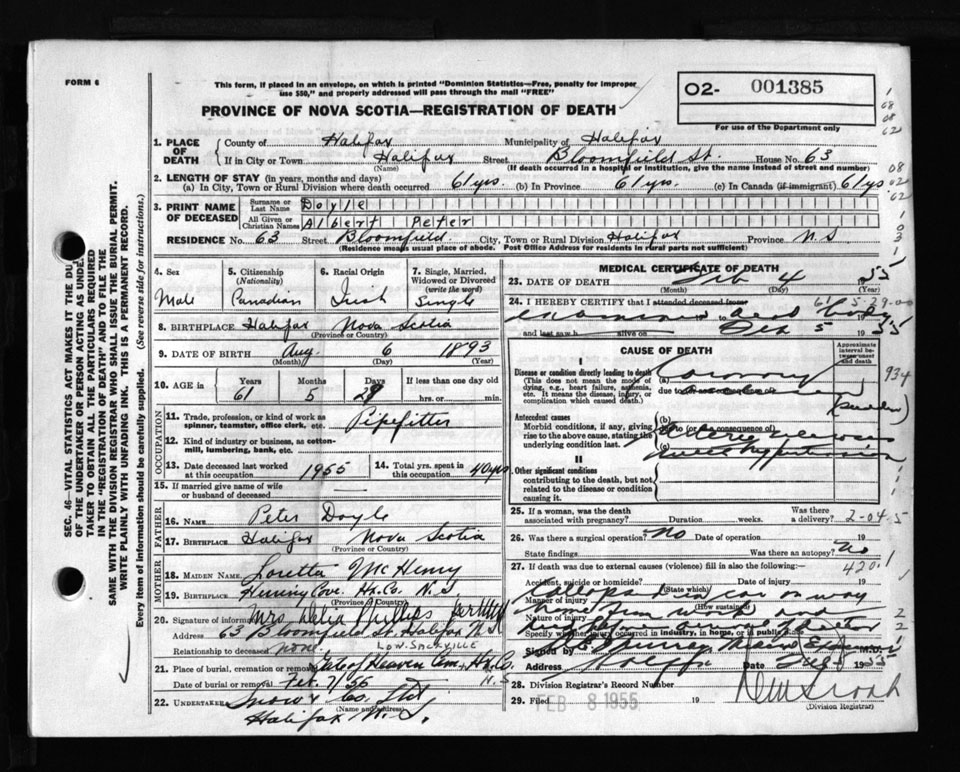 FORM 6
This form, if placed in an envelope, on which is printed "Dominion Statistics—Free, penalty for improper
use $50," and properly addressed will pass through the mail "FREE"
PROVINCE OF NOVA SCOTIA—REGISTRATION OF DEATH
O2- 001385
For use of the Department only
SEC. 46—VITAL STATISTICS ACT MAKES IT THE DU
OF THE UNDERTAKER OR PERSON ACTING AS UNDE
TAKER TO OBTAIN ALL THE PARTICULARS REQUIRED
IN THE "REGISTRATION OF DEATH" AND TO FILE THE
SAME WITH THE DIVISION REGISTRAR WHO SHALL ISSUE THE BURIAL PERMIT.
WRITE PLAINLY WITH UNFADING INK. THIS IS A PERMANENT RECORD.
Every item of information should be carefully supplied. (See reverse side for instructions.)
1. PLACE OF DEATH
County of Halifax Municipality of Halifax
If in City or Town Halifax Street Bloomfield St. House No. 63
(Name) (If death occurred in a hospital or institution, give the name instead of street and number)
2. LENGTH OF STAY (in years, months and days)
(a) In City, Town or Rural Division where death occurred 61 yrs. (b) In Province 61 yrs. (c) In Canada (if immigrant) 61 yrs
3. PRINT NAME OF DECEASED
Surname or Last Name Doyle
All Given or Christian Names Albert Peter
RESIDENCE No. 63 Street Bloomfield City, Town or Rural Division Halifax Province N.S
(Residence means usual place of abode. Post Office Address for residents in rural parts not sufficient)
4. Sex Male
5. Citizenship (Nationality) Canadian
6. Racial Origin Irish
7. Single, Married, Widowed or Divorced (write the word) Single
8. BIRTHPLACE Halifax Nova Scotia
(Province or Country)
9. DATE OF BIRTH Aug. 6 1893
(Month) (Day) (Year)
10. AGE in Years 61 Months 5 Days 28 If less than one day old hrs. or min.
OCCUPATION
11. Trade, profession, or kind of work as spinner, teamster, office clerk, etc. Pipefitter
12. Kind of industry or business, as cotton-mill, lumbering, bank, etc.
13. Date deceased last worked at this occupation 1955
14. Total yrs. spent in this occupation 40 yrs.
15. If married give name of wife or husband of deceased
FATHER
16. NAME Peter Doyle
17. BIRTHPLACE Halifax Nova Scotia
(Province or Country)
MOTHER
18. MAIDEN NAME Loretta McHenry
19. BIRTHPLACE Herring Cove. Hx. Co. N.S.
(Province or Country)
20. Signature of informant Mrs. Delia Phillips
Address 63 Bloomfield St. Halifax N.S
Relationship to deceased none. LOW. SACKVILLE
21. Place of burial, cremation or removal Gate of Heaven Cem. Hx. Co.
Date of burial or removal Feb. 7/56 N.S
22. Undertaker Snow Co. Ltd.
(Name and address)
Halifax N.S.
MEDICAL CERTIFICATE OF DEATH
23. DATE OF DEATH Feb 4 1955
(Month) (Day) (Year)
24. I HEREBY CERTIFY that I attended deceased from
examined dead body
and last saw h alive on Feb 5 1955
CAUSE OF DEATH
Approximate interval between onset and death
I
Disease or condition directly leading to death (a) Coronary
(This does not mean the mode of dying, e.g., heart failure, asthenia, etc. It means the disease, injury, or complication which caused death.)
due to (or as a consequence of)
occlusion
(sudden)
934
Antecedent causes
Morbid conditions, if any, giving rise to the above cause, stating the underlying condition last.
(b)
due to (or as a consequence of)
(c)
hypertension
II
Other significant conditions
contributing to the death, but not related to the disease or condition causing it.
25. If a woman, was the death associated with pregnancy? Duration weeks. Was there a delivery? 2-04.5
26. Was there a surgical operation? No
State findings Was there an autopsy? No
27. If death was due to external causes (violence) fill in also the following: 420.1
Accident, suicide or homicide? Date of injury 19
(State which)
Manner of injury
(How sustained)
Nature of injury
Specify whether injury occurred in industry, in home, or in public place
Signed by M.D.
Address Halifax Date Feb 1955
28. Division Registrar's Record Number
29. Filed FEB 8 1955 19
(Division Registrar)